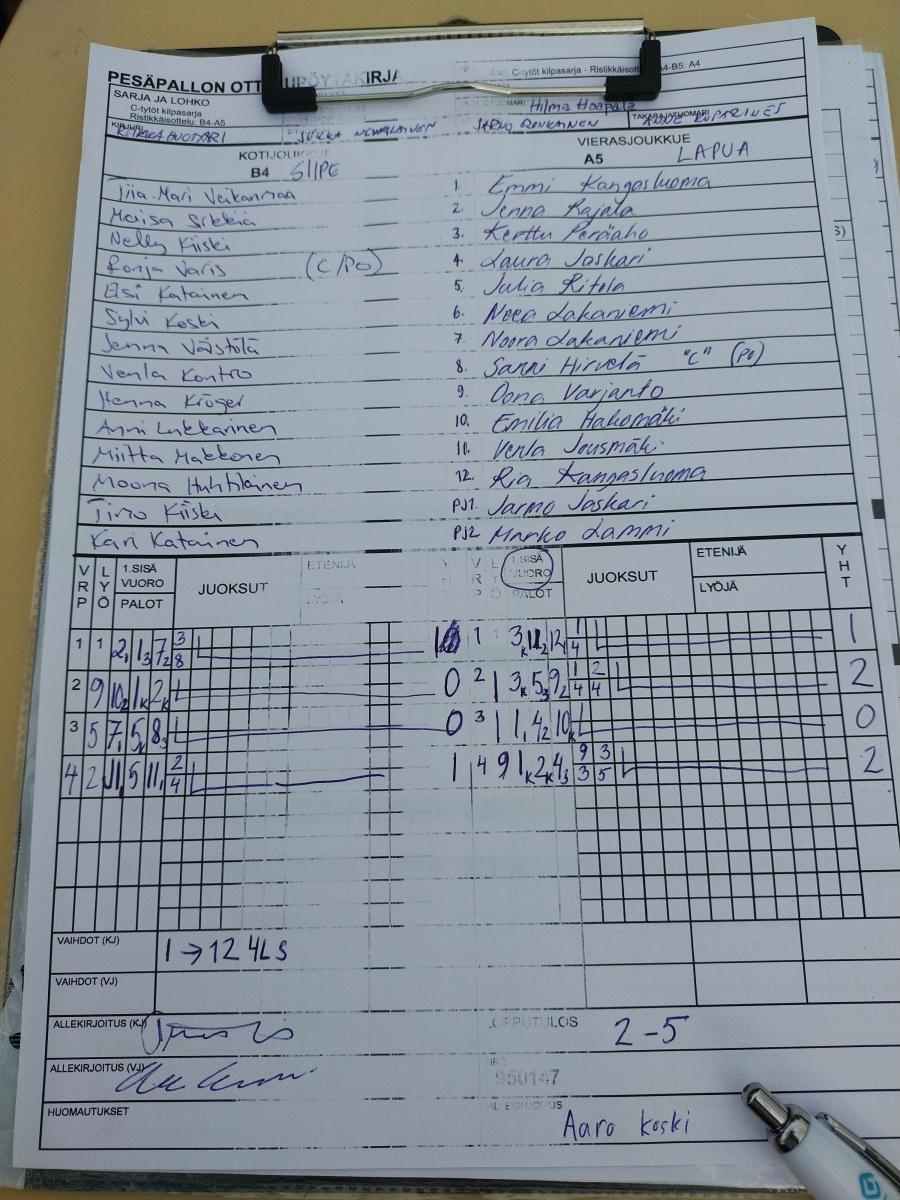 PESÄPALLON OTT UPÖYTÄKIRJA
SARJA JA LOHKO
C-tytöt kilpasarja
Ristikkäisottelu: B4-A5
C-tytöt kilpasarja - Ristikkäisott A4-B5: A4
Hilma Haapala
KIRJURI JUKKA JARNO TAKARAJATUOMARI
KOTIJOUKKUE VIERASJOUKKUE
B4 SIIPE A5 LAPUA
Tiia-Mari Veikanmaa 1. Emmi Kangasluoma
Maisa Sikkiä 2. Jenna Rajala
Nelly Kiiski 3. Kerttu Peräaho
Ronja Varis (C/PO) 4. Laura Jaskari
Elsi Katainen 5. Julia Ritola
Sylvi Koski 6. Neea Lakaniemi
Jenna Väistölä 7. Noora Lakaniemi
Venla Kontro 8. Sanni Hirvelä "C" (PO)
Henna Kröger 9. Oona Varjanto
Anni Lukkarinen 10. Emilia Hakomäki
Miitta Makkonen 11. Venla Jousmäki
Moona Huhtilainen 12. Ria Kangasluoma
Timo Kiiski PJ1. Jarmo Jaskari
Kari Katainen PJ2 Marko Lammi
VRP LYÖ 1.SISÄ VUORO PALOT JUOKSUT ETENIJÄ LYÖJÄ YHT VRP LYÖ 1.SISÄ VUORO PALOT JUOKSUT ETENIJÄ LYÖJÄ YHT
1 1 2 1 7 3 8 1 1 3 11 12 1 4 1
2 9 10 1 2 0 2 1 3 5 9 1 4 2 4 2
3 5 7 5 8 0 3 1 1 4 10 0
4 2 11 5 11 2 4 1 4 9 1 2 4 9 3 3 5 2
VAIHDOT (KJ) 1 → 12 4LS
VAIHDOT (VJ)
ALLEKIRJOITUS (KJ) LOPPUTULOS 2-5
ALLEKIRJOITUS (VJ) 950147
HUOMAUTUKSET ALLEKIRJOITUS Aaro Koski